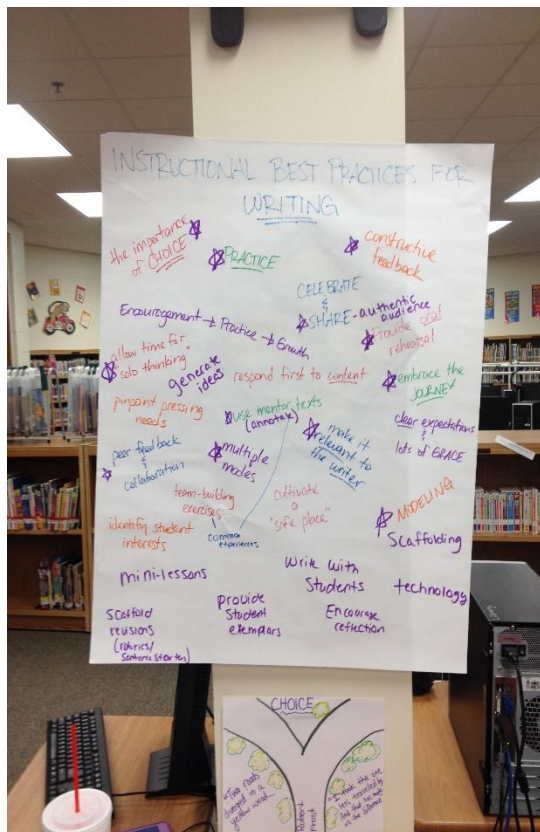 INSTRUCTIONAL BEST PRACTICES FOR
WRITING
the importance
of CHOICE
PRACTICE
constructive
feedback
CELEBRATE
&
SHARE - authentic
audience
Encouragement → Practice → Growth
Provide oral
rehearsal
"allow time for
"solo thinking"
generate
ideas
respond first to content
embrace the
JOURNEY
pinpoint pressing
needs
use mentor texts
(annotate)
make it
relevant to
the writer
clear expectations
&
lots of GRACE
peer feedback
&
collaboration
multiple
modes
team-building
exercises
cultivate
a
"safe place"
MODELING
Scaffolding
identify student
interests
common
experiences
mini-lessons
Write with
Students
technology
Scaffold
revisions
(rubrics/
sentence starters)
provide
Student
exemplars
Encourage
reflection
CHOICE
"Two roads
diverged in a
yellow wood...
Robert
Frost
I took the one
less traveled by
And that has made
all the difference